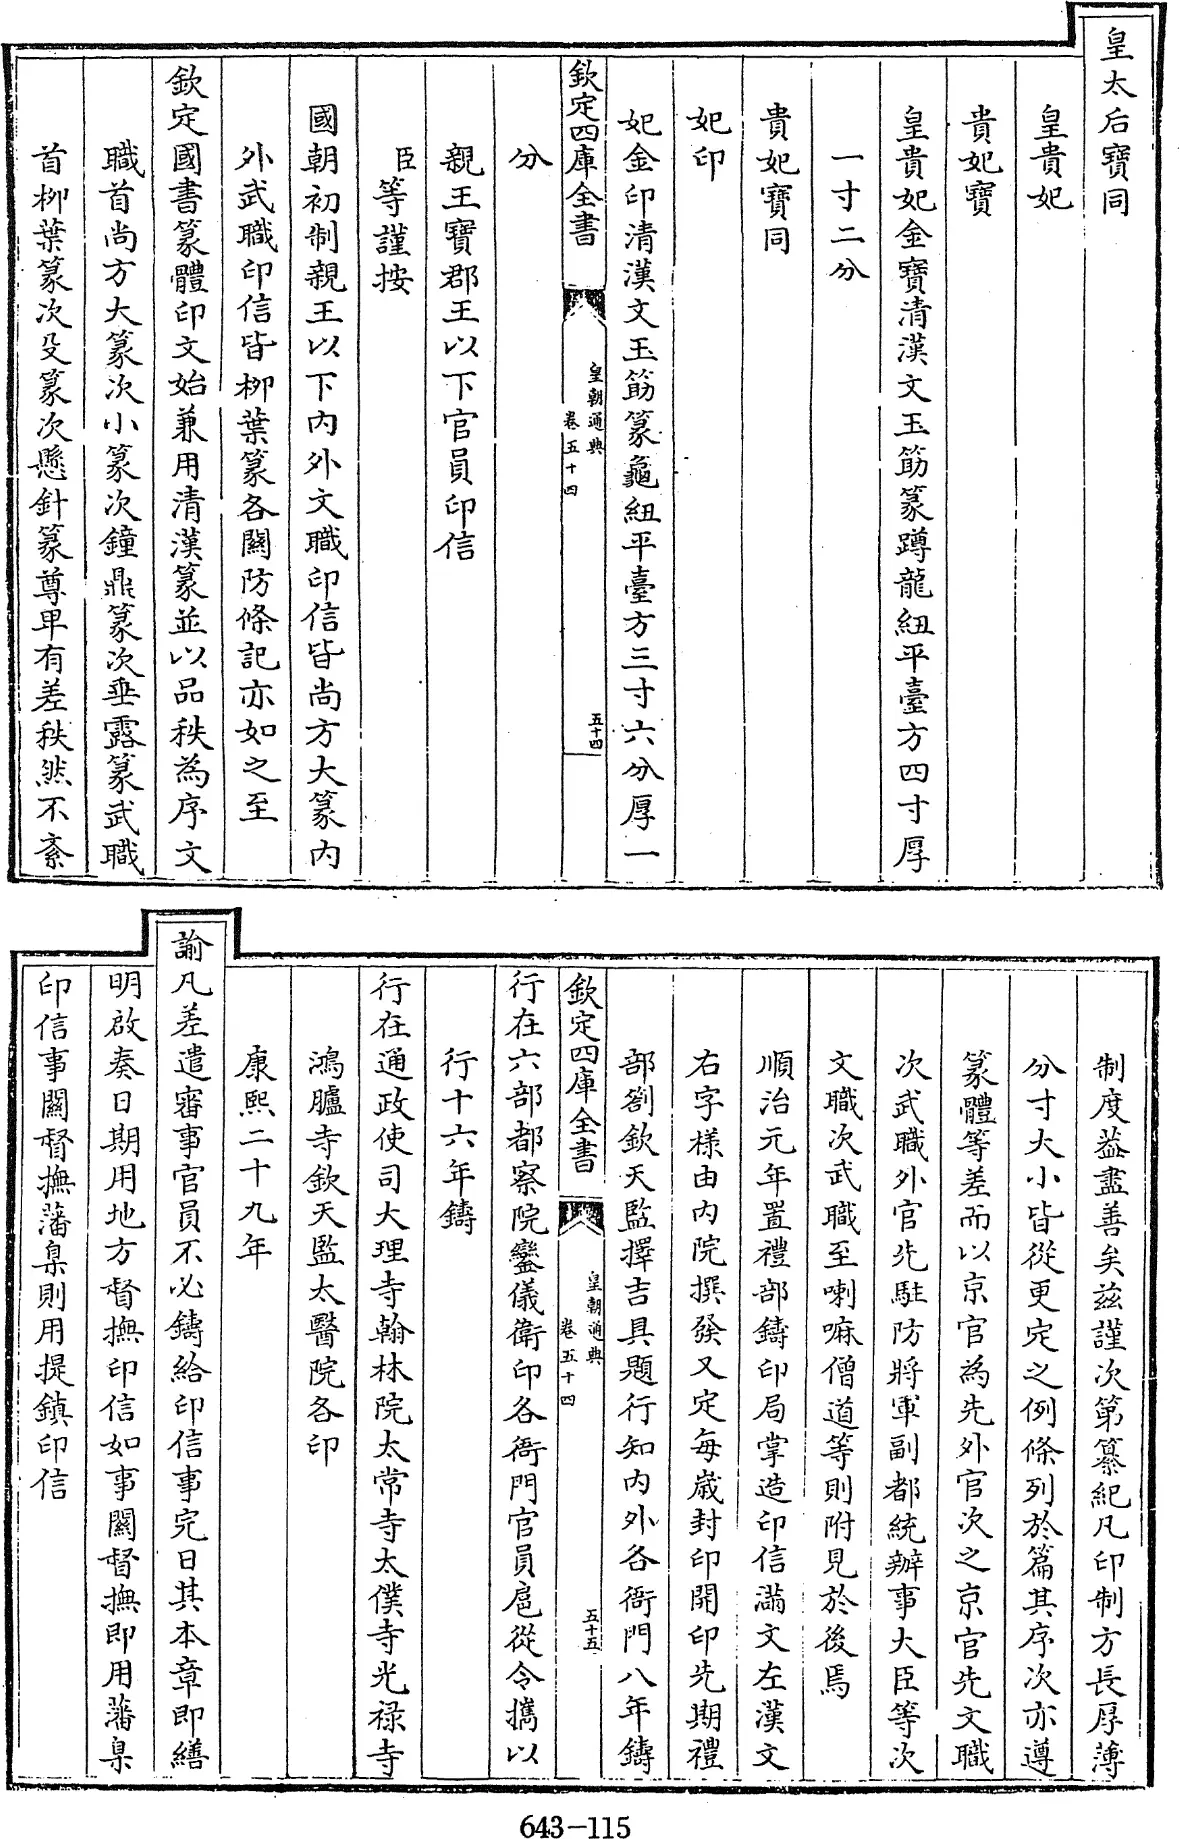 皇太后寶同
皇貴妃
貴妃寶
皇貴妃金寶清漢文玉筯篆蹲龍紐平臺方四寸厚
一寸二分
貴妃寶同
妃印
妃金印清漢文玉筯篆龜紐平臺方三寸六分厚一
欽定四庫全書
皇朝通典
卷五十四
五十四
分
親王寶郡王以下官員印信
臣等謹按
國朝初制親王以下內外文職印信皆尚方大篆內
外武職印信皆柳葉篆各關防條記亦如之至
欽定國書篆體印文始兼用清漢篆並以品秩為序文
職首尚方大篆次小篆次鐘鼎篆次垂露篆武職
首柳葉篆次殳篆次懸針篆尊卑有差秩然不紊
制度益盡善矣茲謹次第纂紀凡印制方長厚薄
分寸大小皆從更定之例條列於篇其序次亦遵
篆體等差而以京官為先外官次之京官先文職
次武職外官先駐防將軍副都統辦事大臣等次
文職次武職至喇嘛僧道等則附見於後焉
順治元年置禮部鑄印局掌造印信滿文左漢文
右字樣由內院撰發又定每嵗封印開印先期禮
部劄欽天監擇吉具題行知內外各衙門八年鑄
欽定四庫全書
皇朝通典
卷五十四
五十五
行在六部都察院鑾儀衛印各衙門官員扈從令攜以
行十六年鑄
行在通政使司大理寺翰林院太常寺太僕寺光禄寺
鴻臚寺欽天監太醫院各印
康熙二十九年
諭凡差遣審事官員不必鑄給印信事完日其本章即繕
明啟奏日期用地方督撫印信如事關督撫即用藩臬
印信事關督撫藩臬則用提鎮印信
643-115